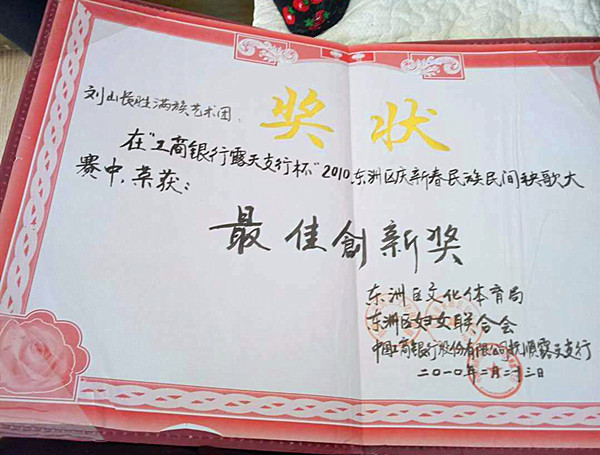 奖状
刘山长胜满族艺术团:
在"工商银行露天支行杯"2010东洲区庆新春民族民间秧歌大
赛中,荣获:
最佳創新奖
东洲区文化体育局
东洲区妇女联合会
中国工商银行股份有限公司抚顺露天支行
二〇一〇年二月二十三日